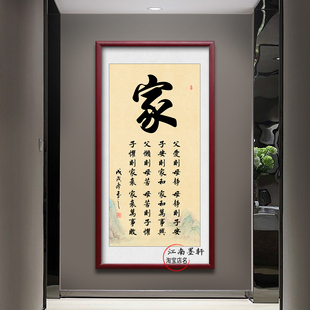 家
父愛則母靜 母靜則子安
子安則家和 家和萬事興
父懶則母苦 母苦則子懼
子懼則家衰 家衰萬事敗
江南墨轩
淘宝店名